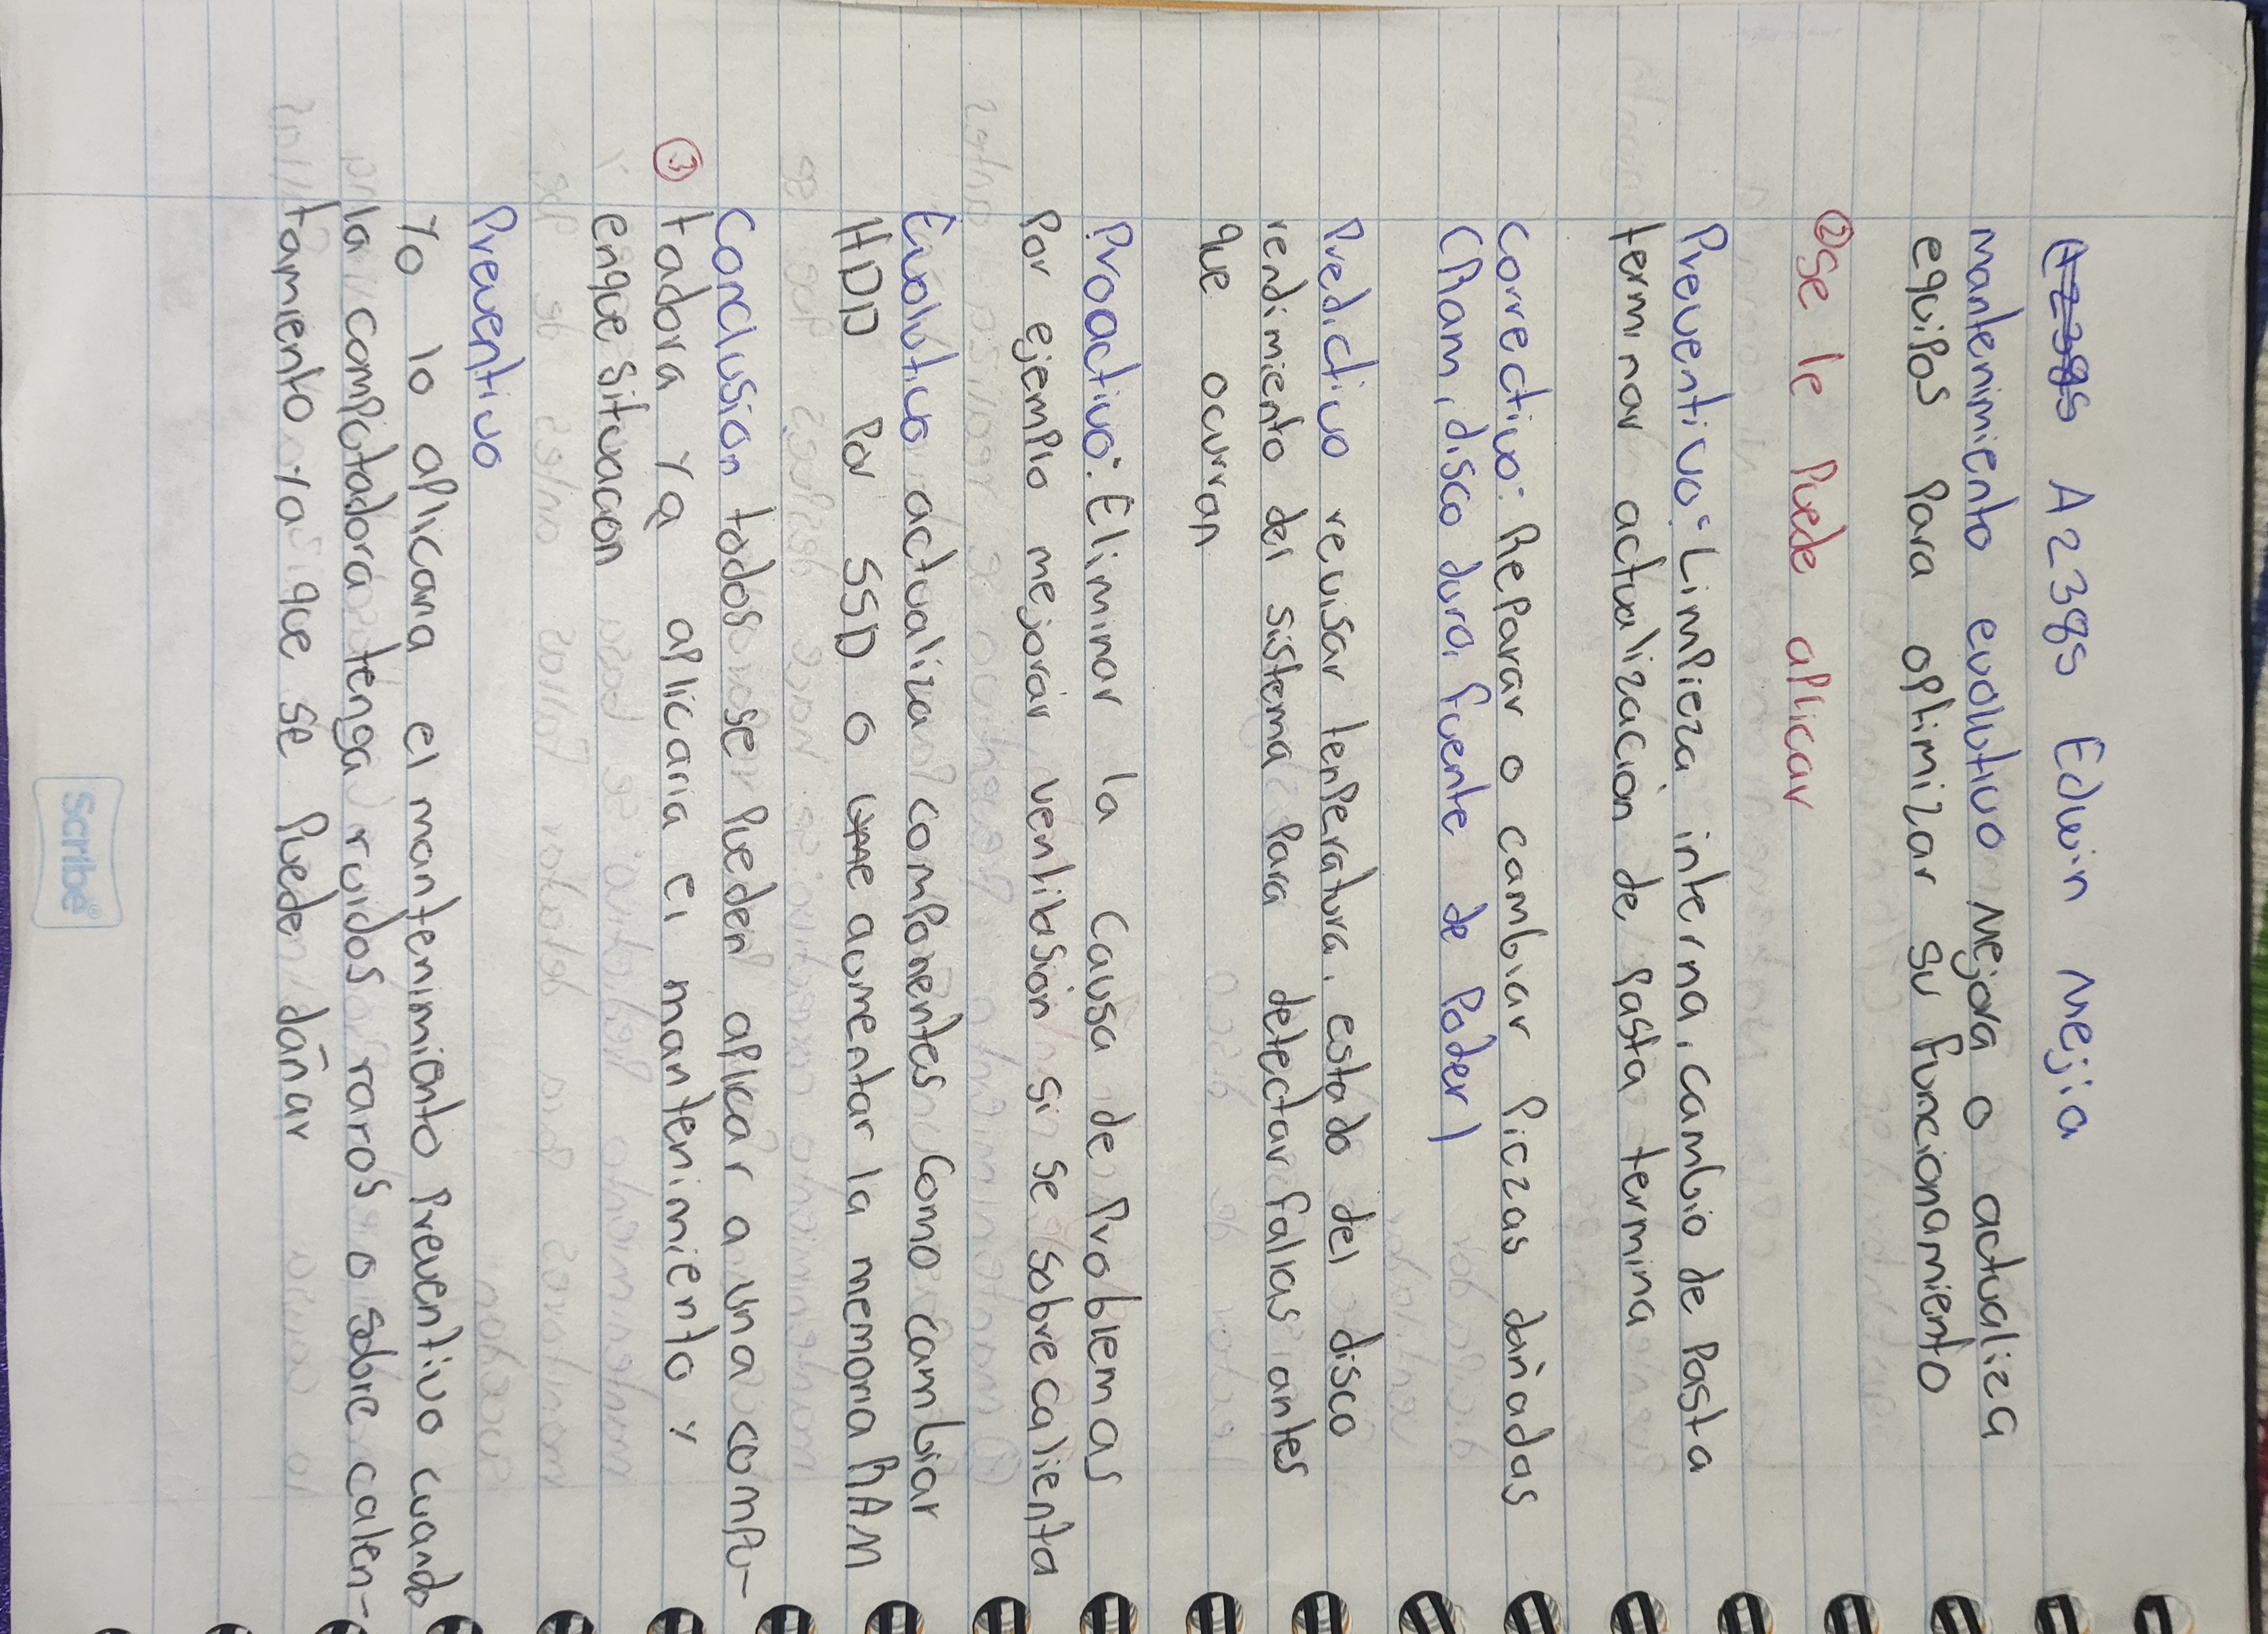 A2385 Edwin Mejia
mantenimiento evolutivo Mejora o actualiza
equipos Para optimizar su funcionamiento
② se le Puede aplicar
Preventivo: Limpieza interna, cambio de Pasta
terminar actualización de Pasta termina
Correctivo: Reparar o cambiar Piezas dañadas
(Ram, disco duro, fuente de Poder)
Predictivo revisar tenperatura, estado del disco
rendimiento del sistema Para detectar fallas antes
que ocurran
Proactivo: Eliminar la causa de Problemas
Por ejemplo mejorar ventilasion si se sobrecalienta
Evolutivo actualiza componentes como cambiar
HDD Por SSD o aumentar la memoria RAM
Conclusion todos se Pueden aplicar a una compu-
③ tadora Ya aplicaria el mantenimiento y
enque situacion
Preventivo
Yo lo aplicaria el mantenimiento Preventivo cuando
la computadora tenga ruidos raros o sobre calen-
tamiento ya que se Puede dañar
Scribe®